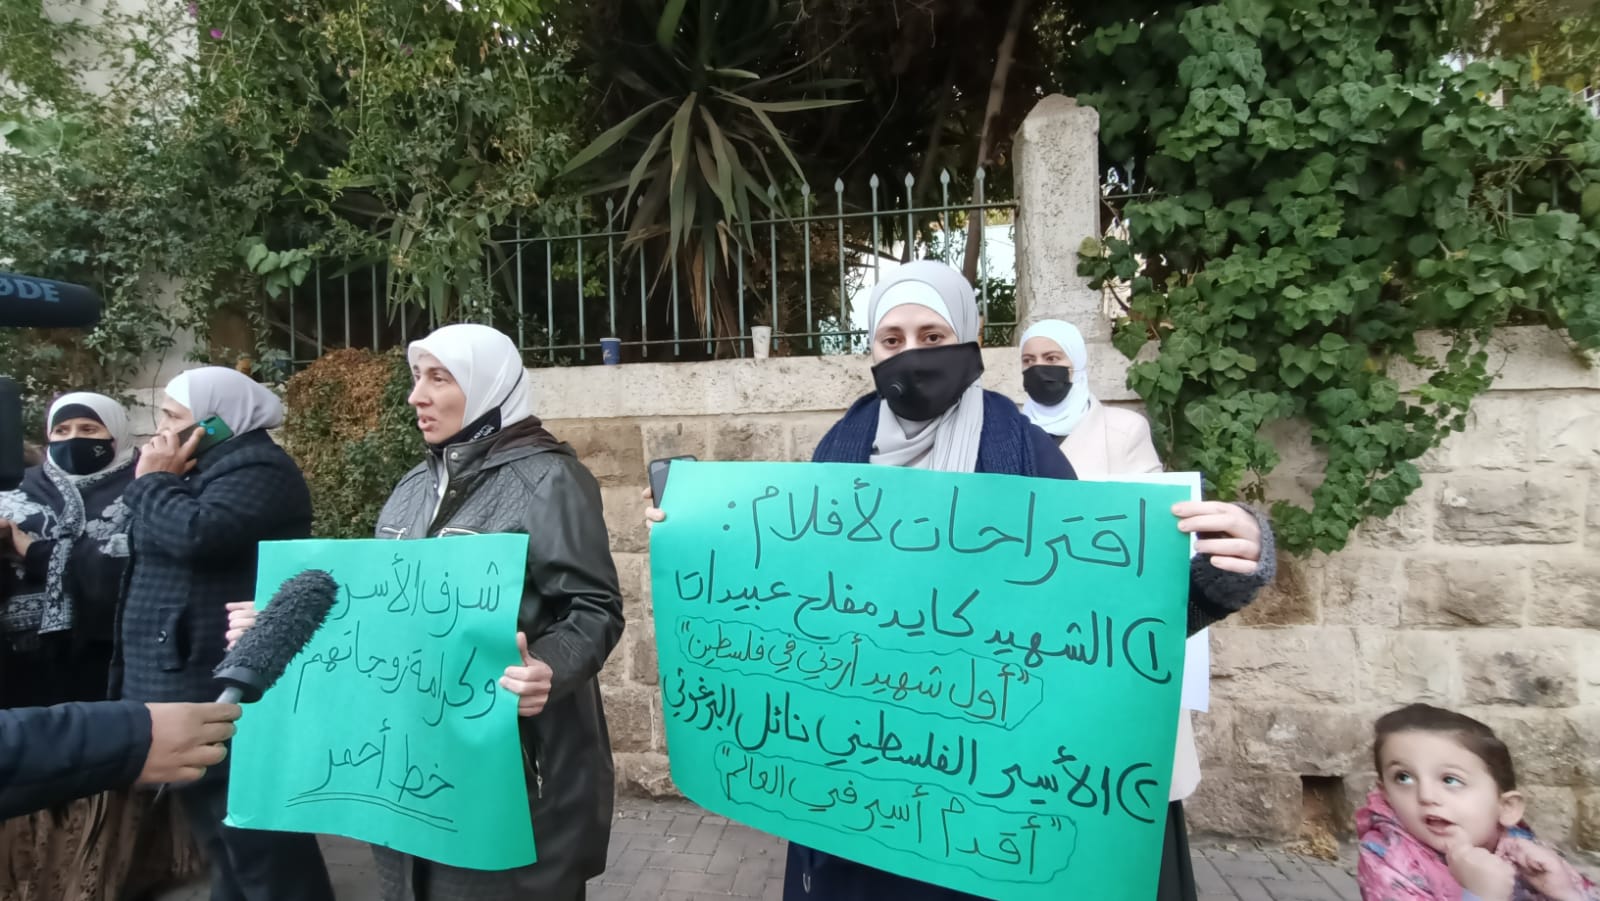 ØDE
شرف الأسر
وكرامة زوجاتهم
خط أحمر
اقتراحات لأفلام :
١) الشهيد كايد مفلح عبيدات
"أول شهيد أردني في فلسطين"
٢) الأسير الفلسطيني نائل البرغوثي
"أقدم أسير في العالم"